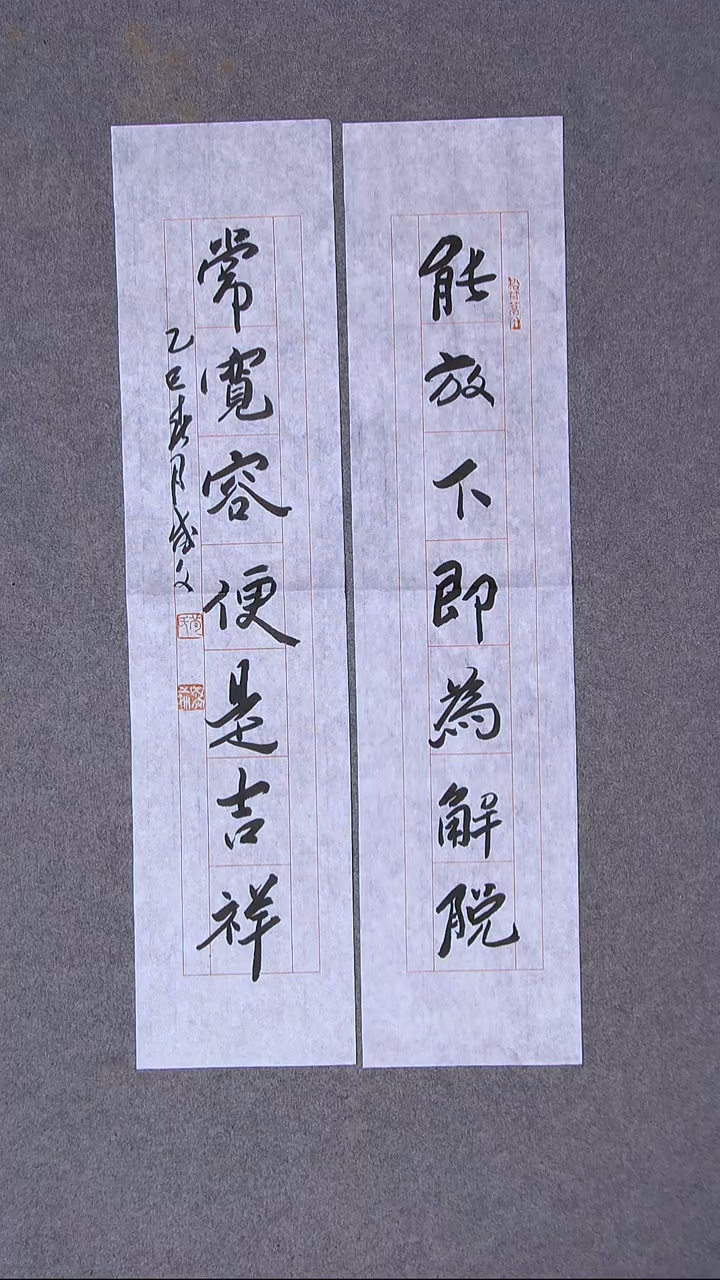 能放下即為解脱
常寬容便是吉祥
乙巳春月成文